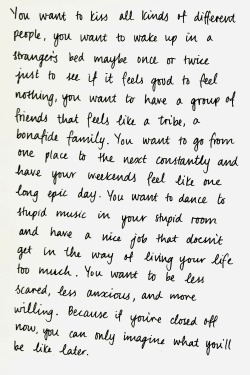 You want to kiss all kinds of different
people, you want to wake up in a
stranger's bed maybe once or twice
just to see if it feels good to feel
nothing, you want to have a group of
friends that feels like a tribe, a
bonafide family. You want to go from
one place to the next constantly and
have your weekends feel like one
long epic day. You want to dance to
stupid music in your stupid room
and have a nice job that doesn't
get in the way of living your life
too much. You want to be less
scared, less anxious, and more
willing. Because if you're closed off
now, you can only imagine what you'll
be like later.